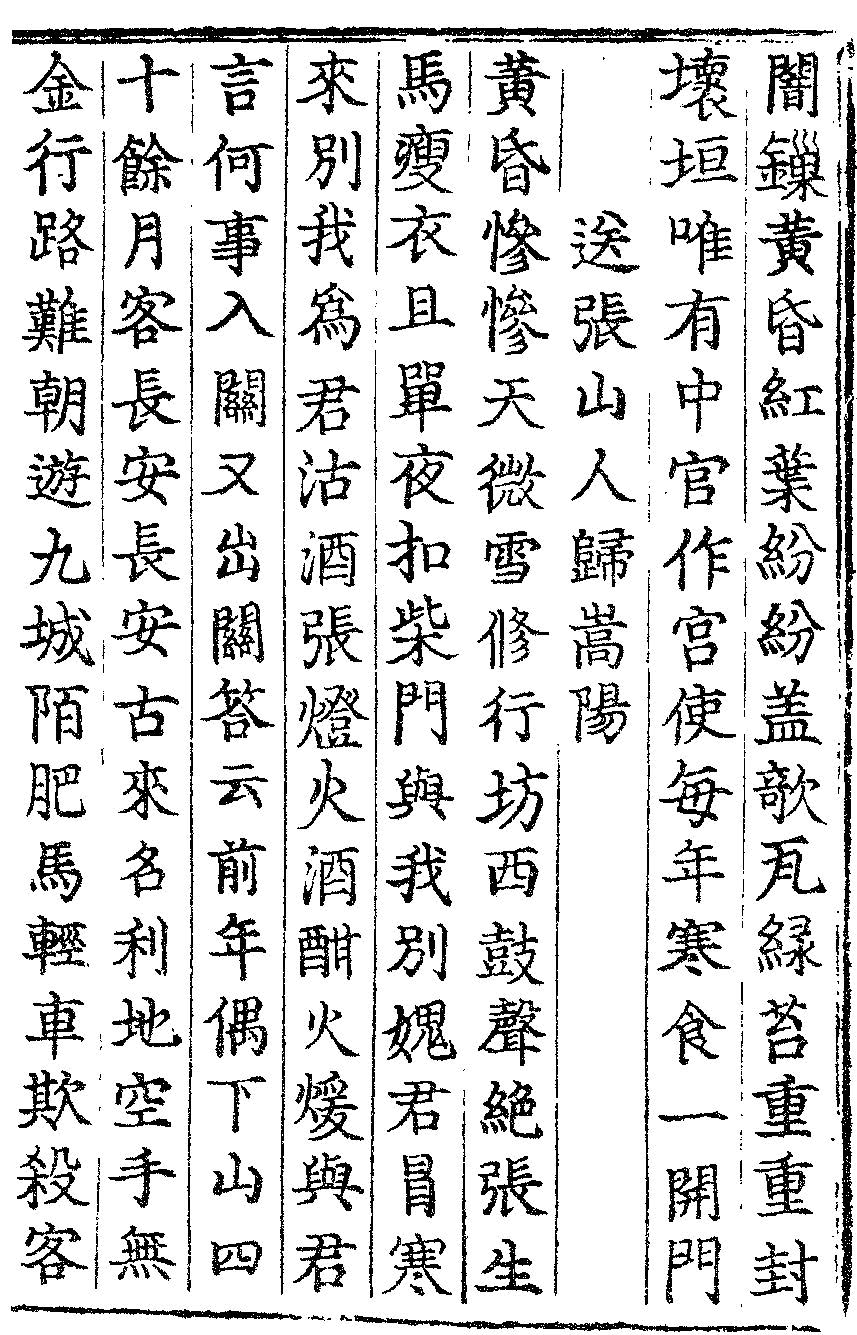 闇鏁黃昏紅葉紛紛盖欹瓦緑苔重重封
壞垣唯有中官作宫使每年寒食一開門
送張山人歸嵩陽
黃昏慘慘天微雪修行坊西鼓聲絶張生
馬瘦衣且單夜扣柴門與我別媿君冒寒
來別我爲君沽酒張燈火酒酣火煖與君
言何事入關又出關答云前年偶下山四
十餘月客長安長安古來名利地空手無
金行路難朝遊九城陌肥馬輕車欺殺客